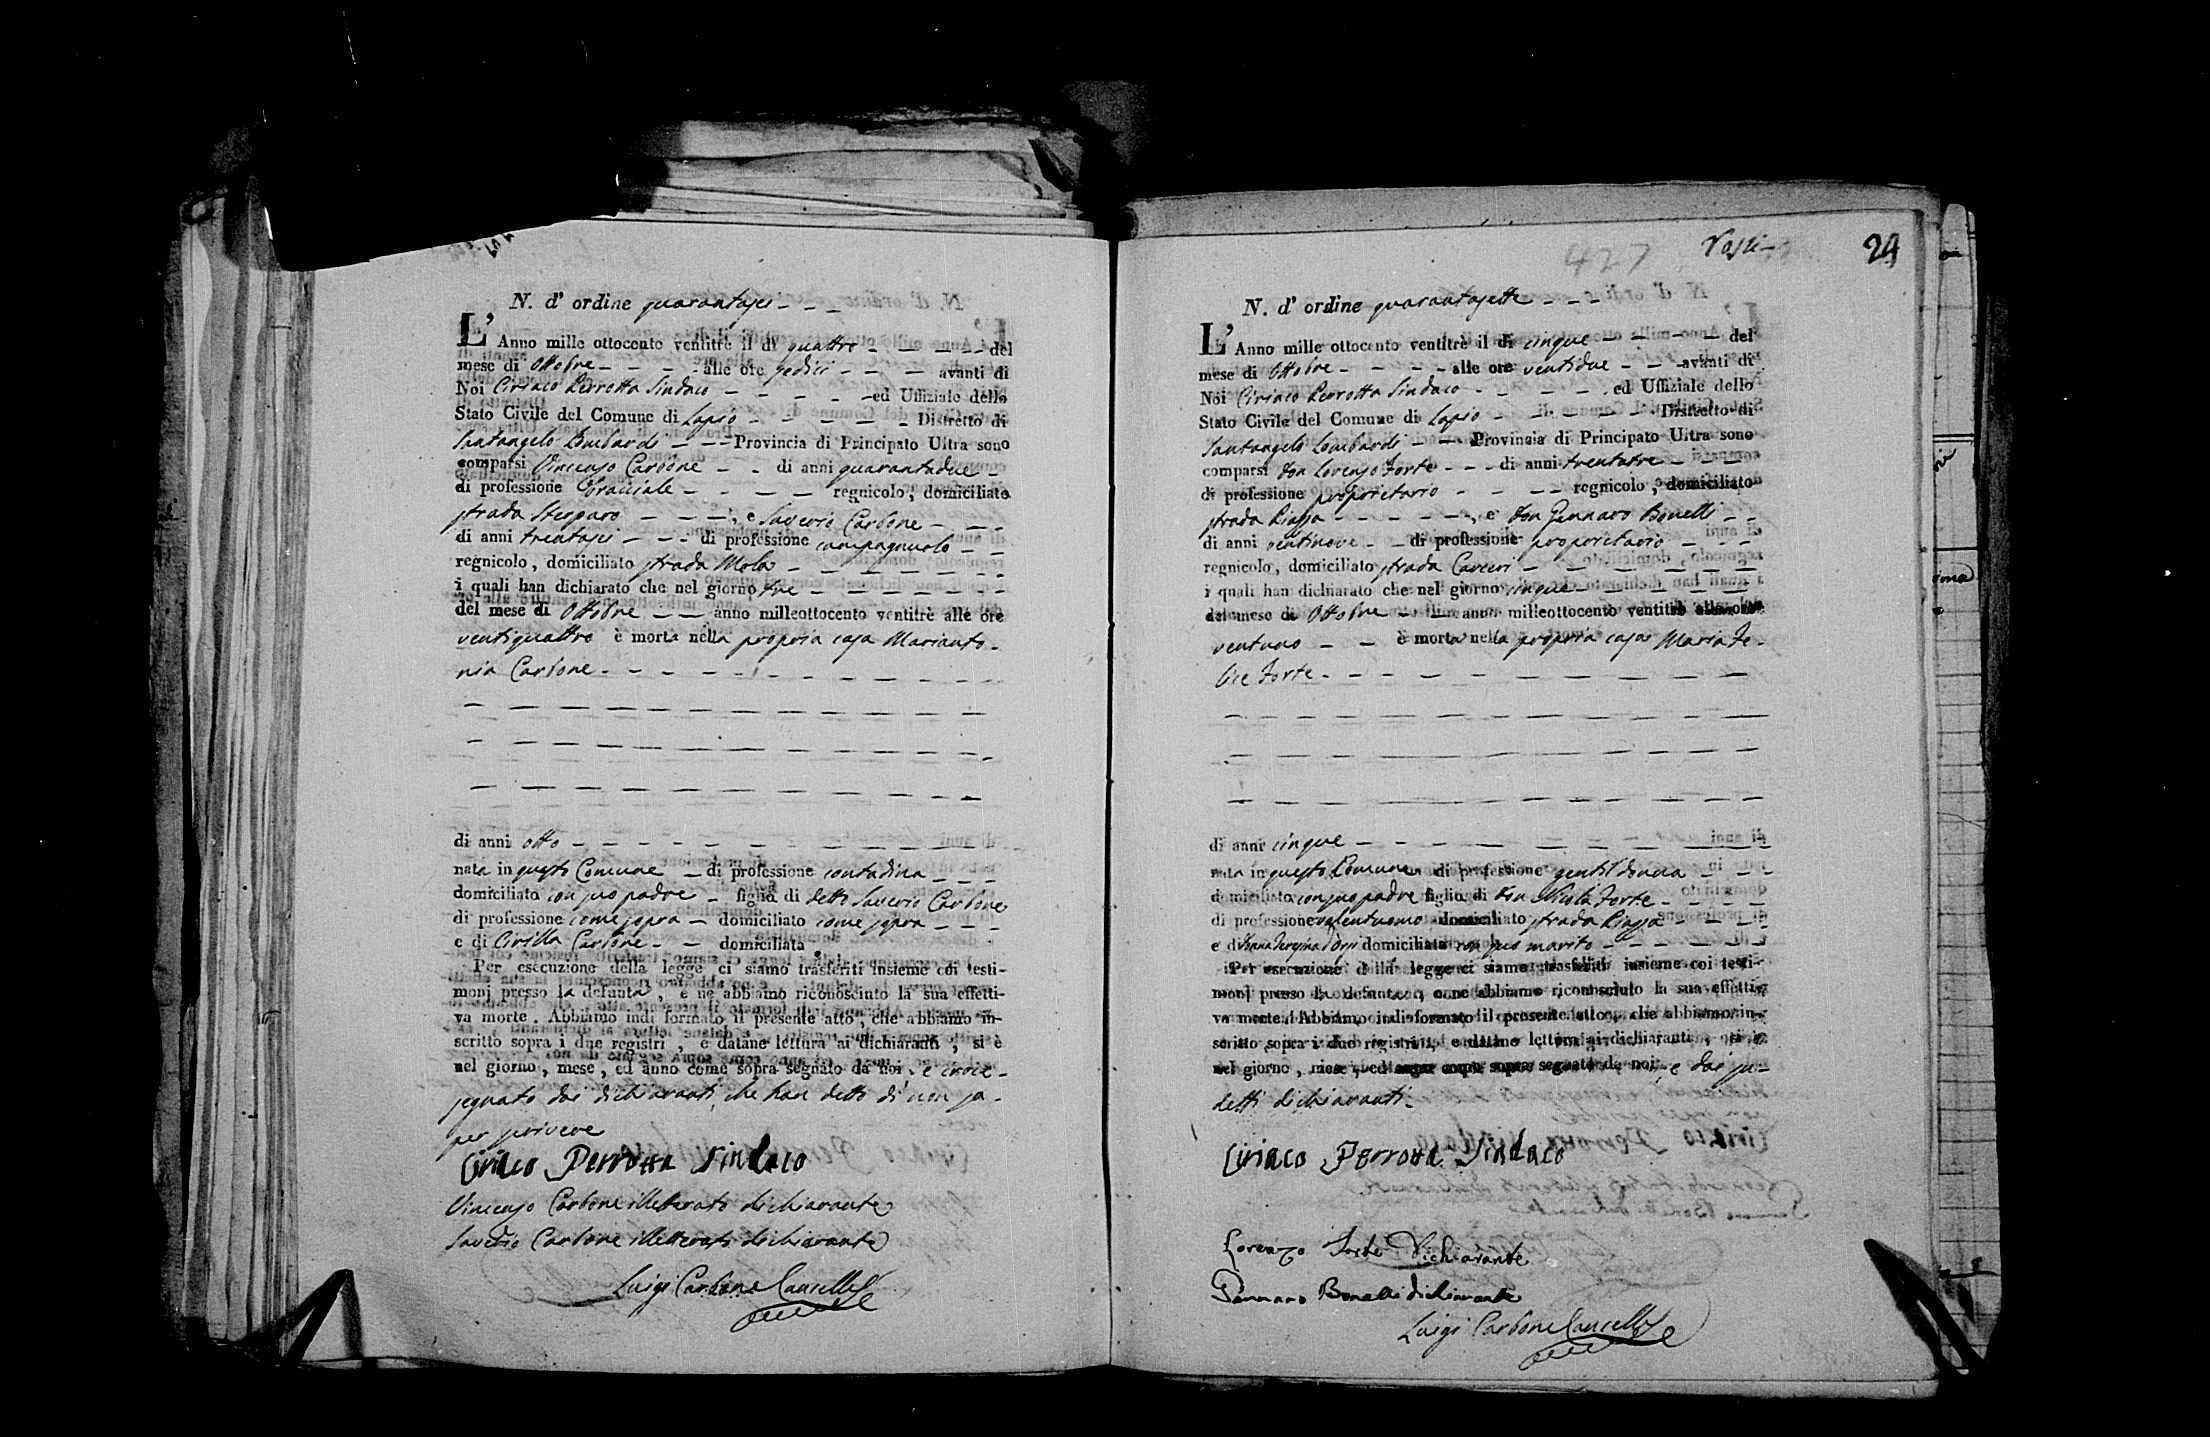 N. d' ordine quarantasei
L' Anno mille ottocento ventitrè il di quattro del
mese di Ottobre alle ore sedici avanti di
Noi Ciriaco Perrotta Sindaco ed Uffiziale dello
Stato Civile del Comune di Lapio Distretto di
Santangelo Lombardi Provincia di Principato Ultra sono
comparsi Vincenzo Carbone di anni quarantadue
di professione bracciale regnicolo, domiciliato
strada Sterparo, e Saverio Carbone
di anni trentasei di professione campagnuolo
regnicolo, domiciliato strada Mola
i quali han dichiarato che nel giorno tre
del mese di Ottobre anno milleottocento ventitrè alle ore
ventiquattro è morta nella propria casa Marianto-
nia Carbone
di anni otto
nata in questo Comune di professione contadina
domiciliato con suo padre figlia di detto Saverio Carbone
di professione come sopra domiciliato come sopra
e di Cirilla Carbone domiciliata
Per esecuzione della legge ci siamo trasferiti insieme coi testi-
monj presso la defunta, e ne abbiamo riconosciuto la sua effetti-
va morte. Abbiamo indi formato il presente atto, che abbiamo in-
scritto sopra i due registri, e datane lettura ai dichiaranti, si è
nel giorno, mese, ed anno come sopra segnato da noi, e croce-
segnato dai dichiaranti che han detto di non sa-
per scrivere
Ciriaco Perrotta Sindaco
Vincenzo Carbone illetterato dichiarante
Saverio Carbone illetterato dichiarante
Luigi Carbone Cancelle
427
24
N. d' ordine quarantasette
L' Anno mille ottocento ventitrè il di cinque del
mese di Ottobre alle ore ventidue avanti di
Noi Ciriaco Perrotta Sindaco ed Uffiziale dello
Stato Civile del Comune di Lapio Distretto di
Santangelo Lombardi Provincia di Principato Ultra sono
comparsi Don Lorenzo Forte di anni trentatre
di professione proprietario regnicolo, domiciliato
strada Piazza, e Don Gennaro Bonelli
di anni ventinove di professione proprietario
regnicolo, domiciliato strada Carceri
i quali han dichiarato che nel giorno cinque
del mese di Ottobre anno milleottocento ventitrè alle ore
ventuno è morta nella propria casa Maria Fe-
lice Forte
di anni cinque
nata in questo Comune di professione gentildonna
domiciliato con suo padre figlia di Don Nicola Forte
di professione valentuomo domiciliato strada Piazza
e di domiciliata con suo marito
Per esecuzione della legge ci siamo trasferiti insieme coi testi-
monj presso la defunta, e ne abbiamo riconosciuto la sua effetti-
va morte. Abbiamo indi formato il presente atto, che abbiamo in-
scritto sopra i due registri, e datane lettura ai dichiaranti, si è
nel giorno, mese, ed anno come sopra segnato da noi, e dai su-
detti dichiaranti
Ciriaco Perrotta Sindaco
Lorenzo Forte Dichiarante
Gennaro Bonelli dichiarante
Luigi Carbone Cancelle